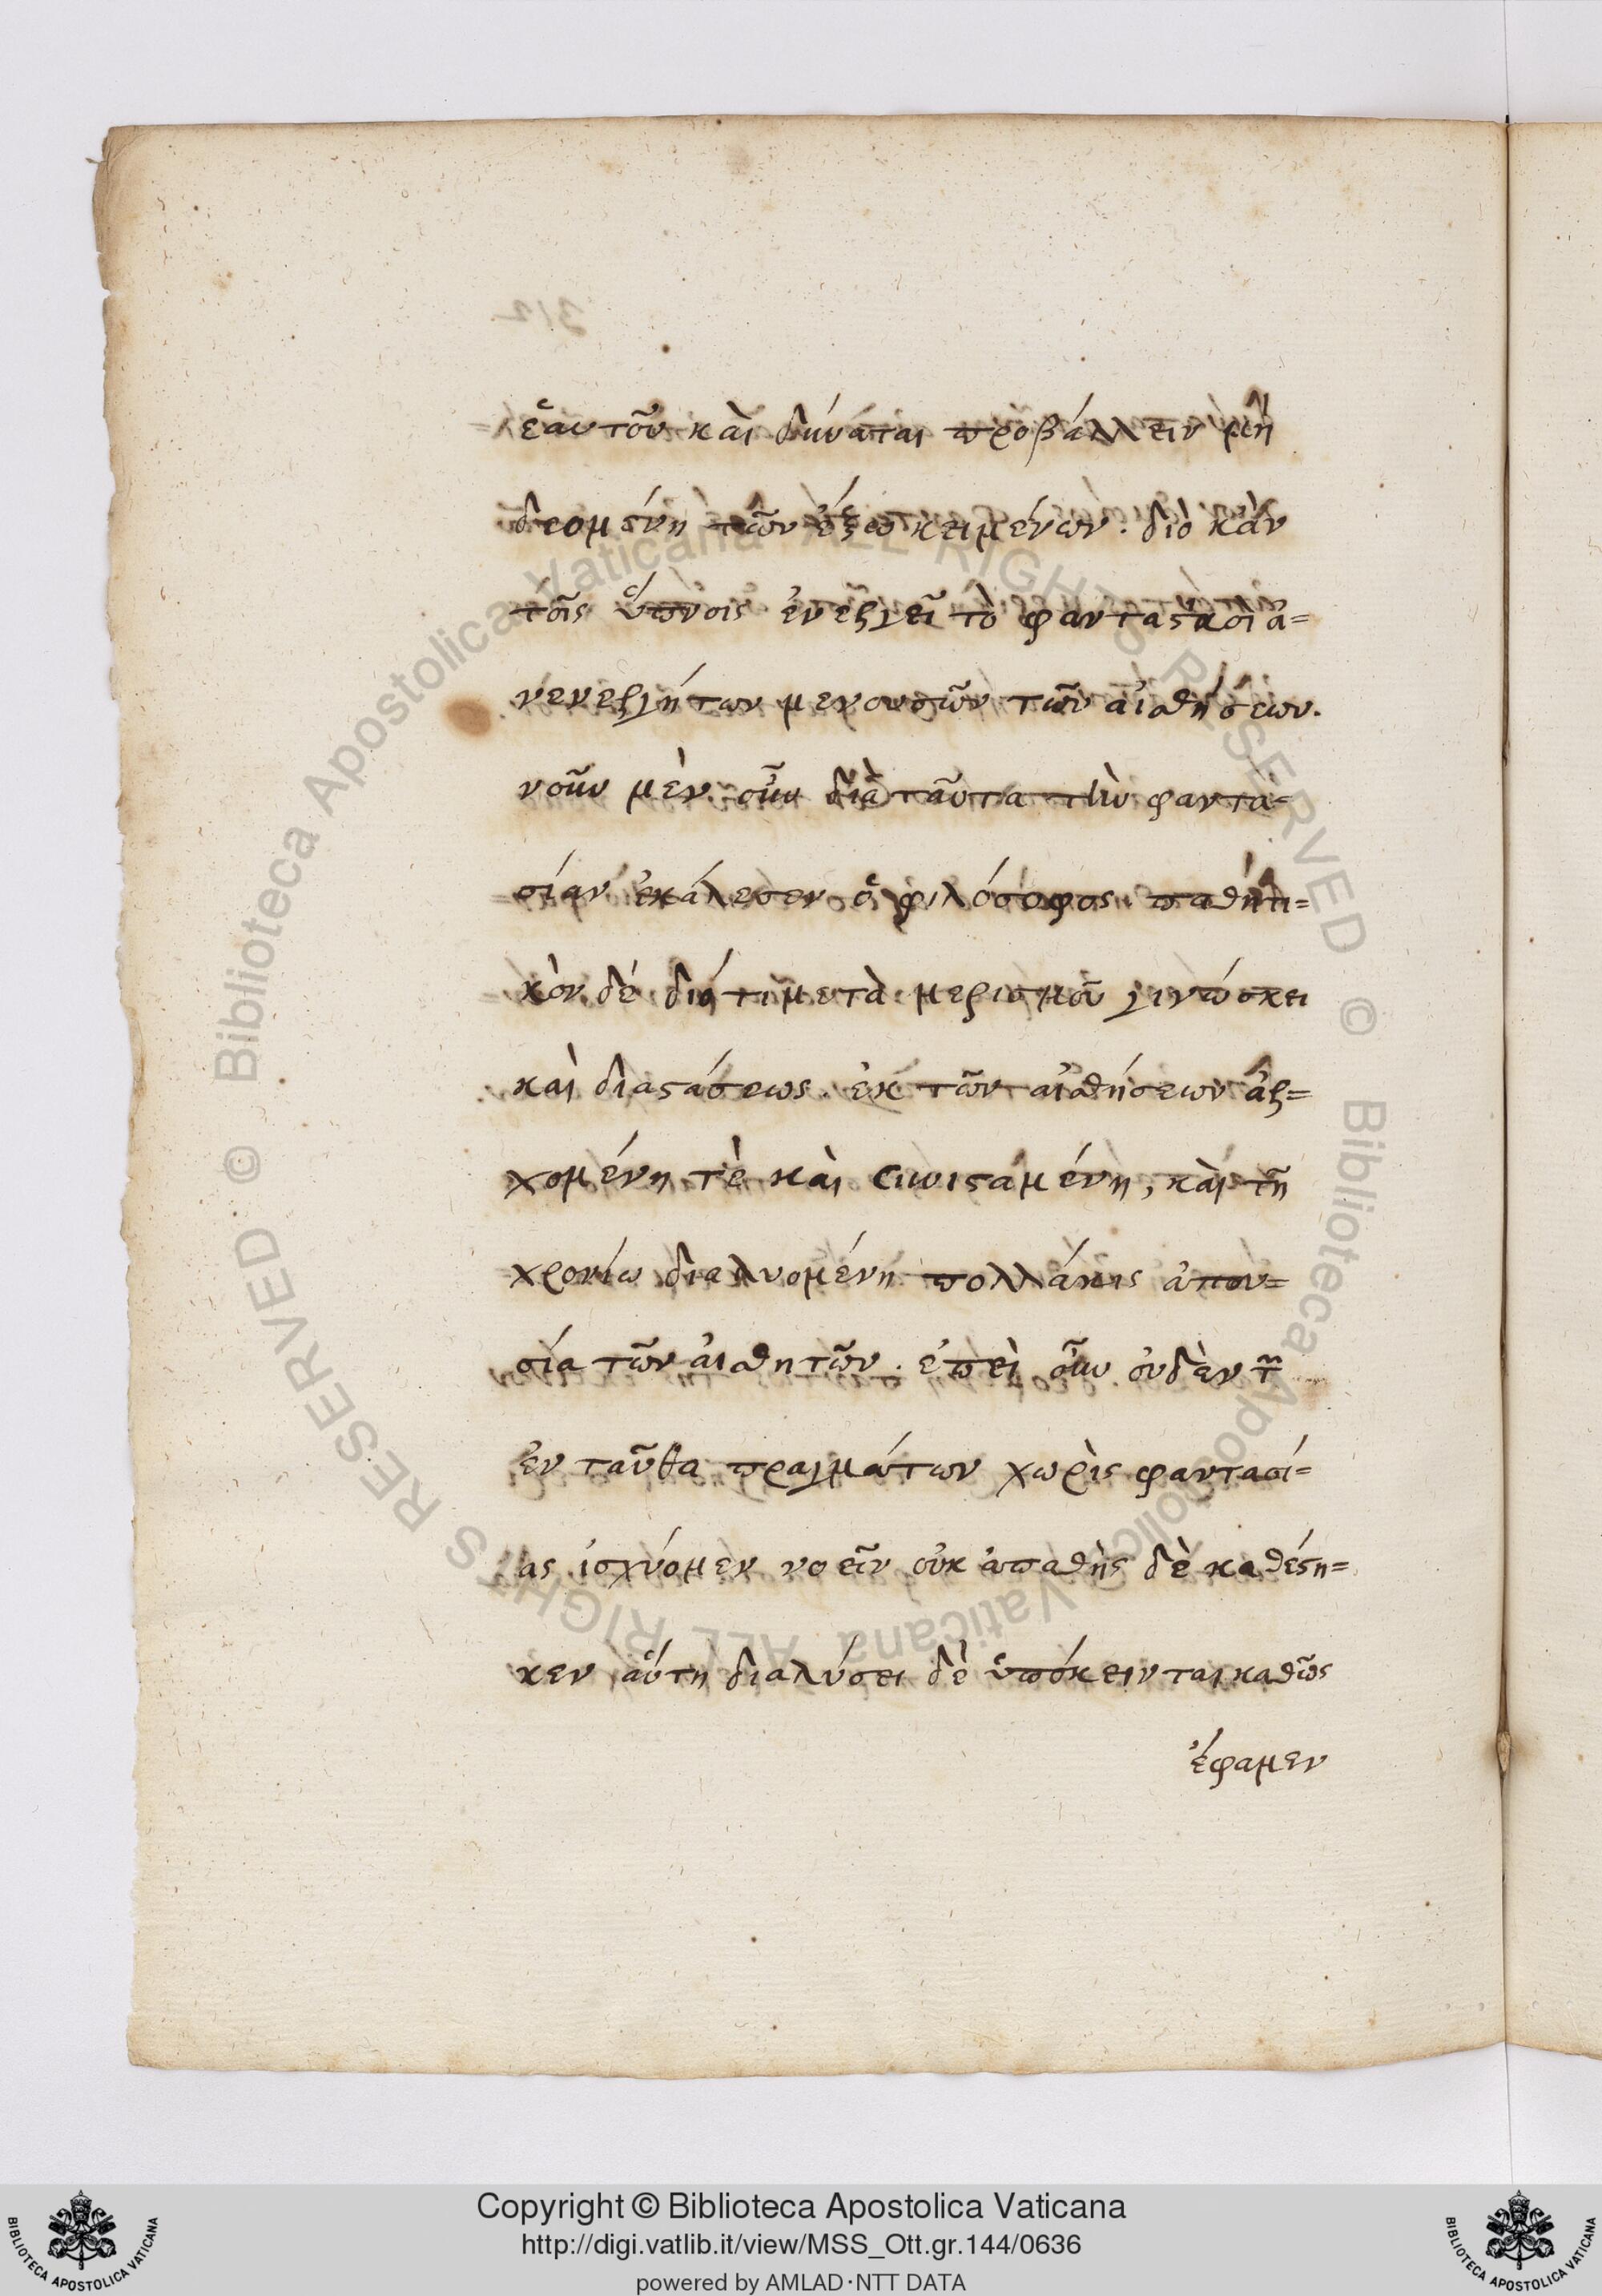 ἑαυτοῦ καὶ δύναται προβάλλειν μὴ
δεομένη τῶν ἔξω κειμένων. διὸ κἀν
τοῖς ὕπνοις ἐνεργεῖ τὸ φανταστὰ οἱ ἀ=
νενεργήτων μενουσῶν τῶν αἰσθήσεων.
νοῦν μὲν οὖν διὰ ταῦτα τὴν φαντα=
σίαν ἐκάλεσεν ὁ φιλόσοφος. παθητι=
κὸν δὲ διότι μετὰ μερισμοῦ γινώσκει
καὶ διαστάσεως. ἐκ τῶν αἰσθήσεων ἀρ=
χομένη τὲ καὶ συνισταμένη, καὶ τῇ
χρονίω διαλυομένη πολλάκις ἀπου=
σία τῶν αἰσθητῶν. ἐπεὶ οὖν οὐδὲν τ῀
ἐν ταῦθα πραγμάτων χωρὶς φαντασί=
ας ἰσχύομεν νοεῖν οὐκ ἀπαθὴς δὲ καθέστη=
κεν αὕτη διαλύσει δὲ ὑπόκεινται καθῶς
ἔφαμεν
312
Copyright © Biblioteca Apostolica Vaticana
http://digi.vatlib.it/view/MSS_Ott.gr.144/0636
powered by AMLAD·NTT DATA
BIBLIOTECA APOSTOLICA VATICANA
BIBLIOTECA APOSTOLICA VATICANA
© Biblioteca Apostolica Vaticana ALL RIGHTS RESERVED
© Biblioteca Apostolica Vaticana ALL RIGHTS RESERVED